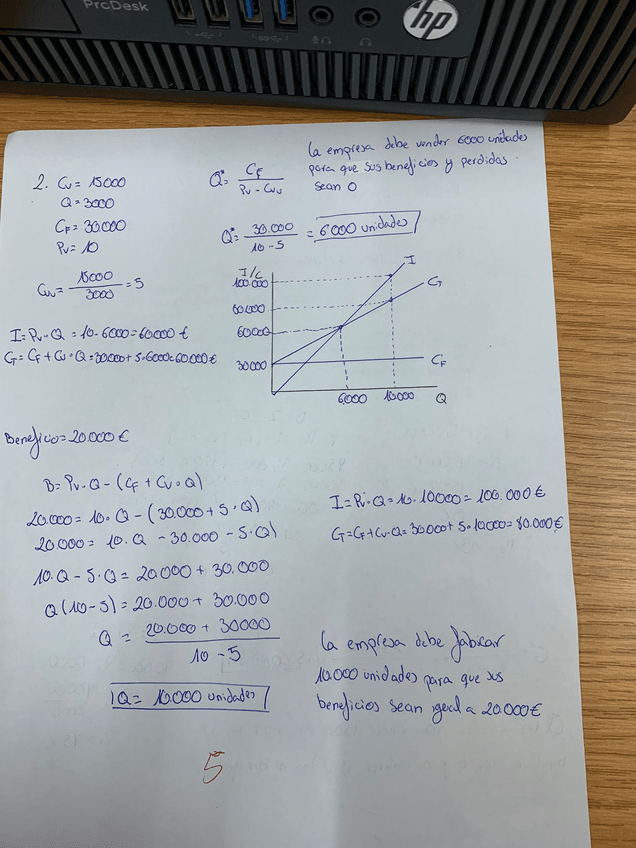 ProDesk
hp
2. Cv = 15000
Q = 3000
CF = 30.000
Pv = 10
Cvu = 15000 / 3000 = 5
Q* = CF / Pv - Cvu
Q* = 30.000 / 10 - 5 = 6'000 unidades
La empresa debe vender 6000 unidades
para que sus beneficios y perdidas
sean 0
I = Pv · Q = 10 · 6000 = 60000 €
CT = CF + Cv · Q = 30000 + 5 · 6000 = 60000 €
I/C
100.000
80.000
60000
30000
I
CT
CF
6000
10000
Q
Beneficio = 20.000 €
B = Pv · Q - (CF + Cv · Q)
20.000 = 10 · Q - (30.000 + 5 · Q)
20.000 = 10 · Q - 30.000 - 5 · Q)
10 · Q - 5 · Q = 20.000 + 30.000
Q (10 - 5) = 20.000 + 30.000
Q = 20.000 + 30000 / 10 - 5
Q = 10.000 unidades
I = Pv · Q = 10 · 10000 = 100.000 €
CT = CF + Cv · Q = 30000 + 5 · 10000 = 80.000 €
La empresa debe fabicar
10.000 unidades para que sus
beneficios sean igual a 20.000 €
5